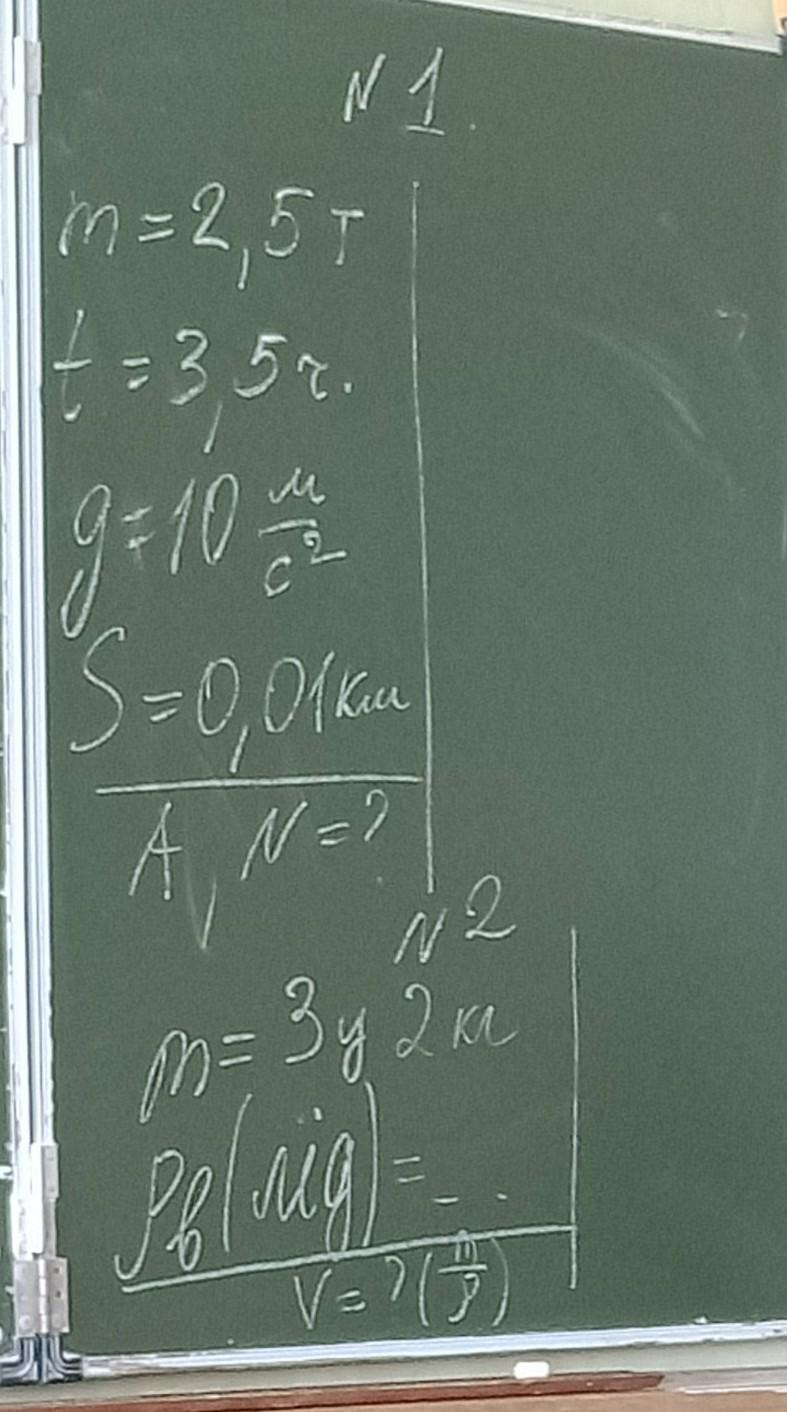 N 1.
m = 2,5 т
t = 3,5 г.
g = 10 м/с²
S = 0,01 км
A, N = ?
N 2
m = 3 ц 2 кг
ρв (лід) = _ .
V = ? (m/ρ)